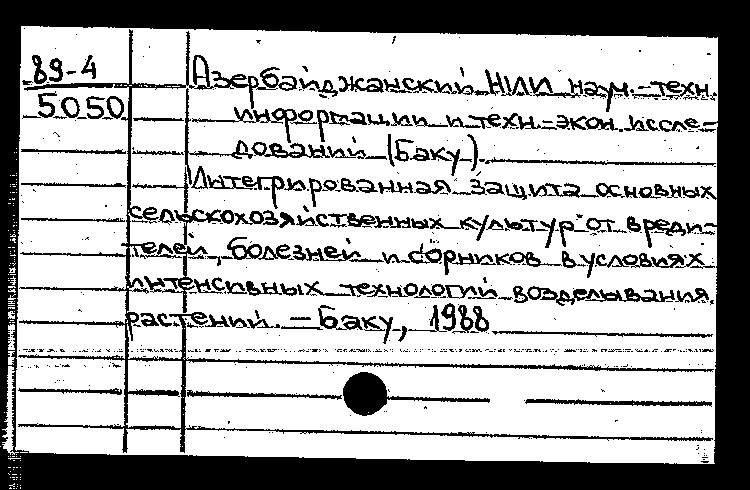 89-4 Азербайджанский НИИ науч.-техн.
5050 информации и техн.-экон. иссле-
дований (Баку).
Интегрированная защита основных
сельскохозяйственных культур от вреди-
телей, болезней и сорников в условиях
интенсивных технологий возделывания
растений. – Баку, 1988